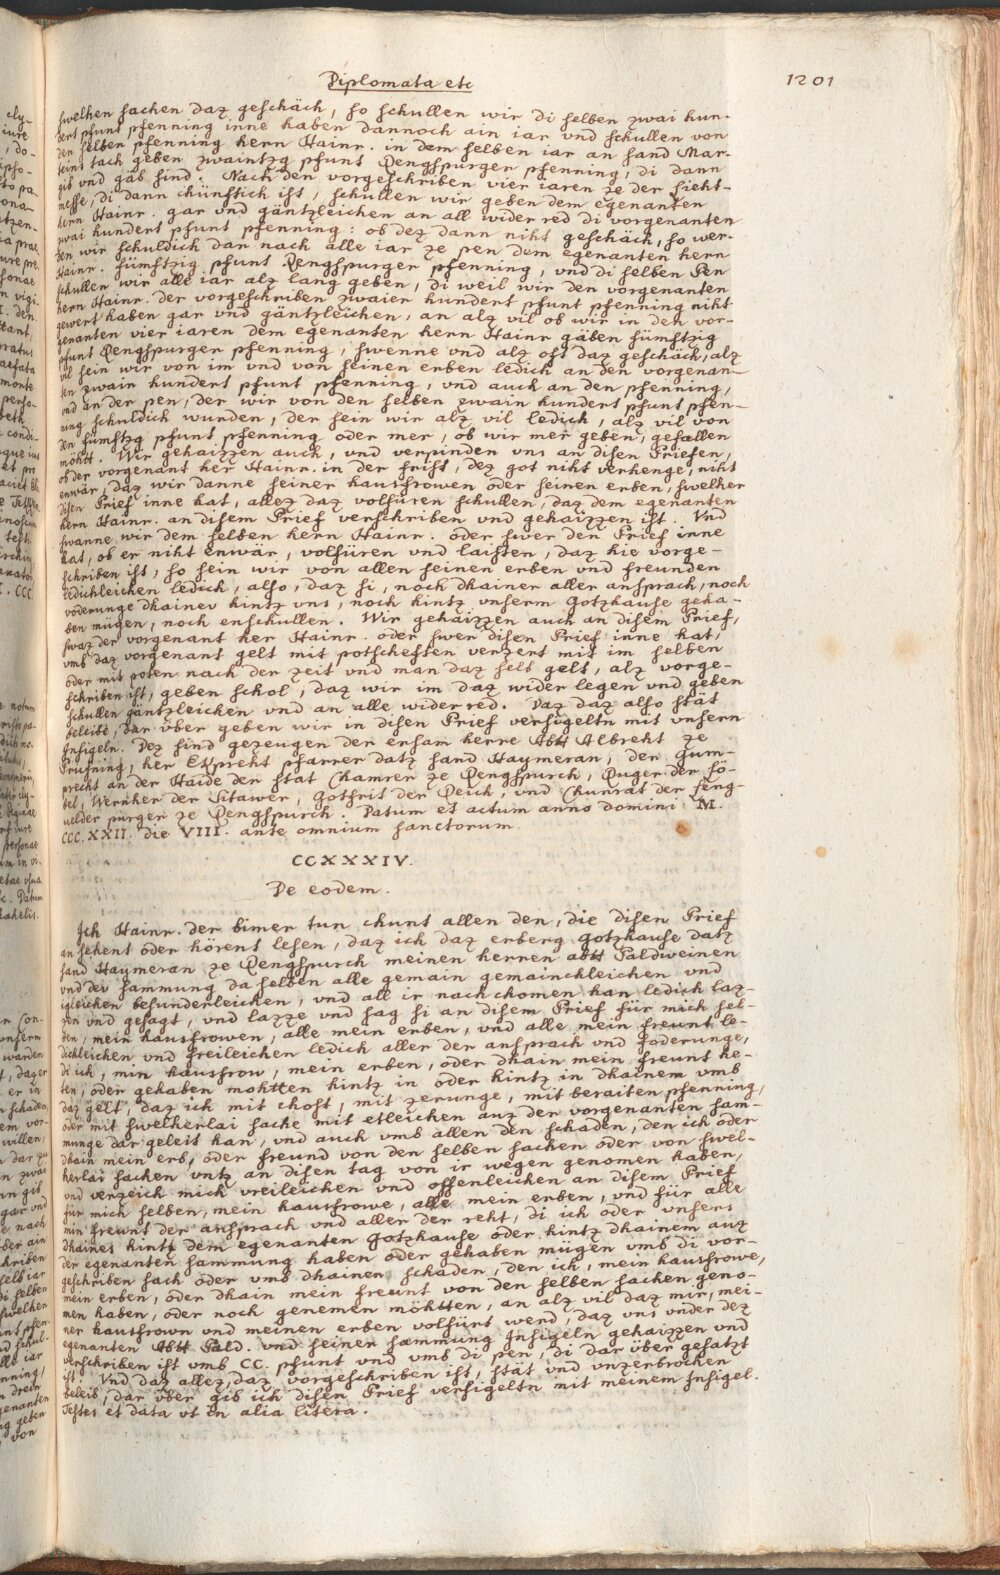 Diplomata etc
1201
swelhen sachen daz geschäch, so schullen wir di selben zwai hun-
dert phunt phenning inne haben dannoch ain iar vnd schullen von
den selben phenning hern Hainr. in dem selben iar an sand Mar-
teins tach geben zwaintzg phunt Rengspurger phenning, di dann
gib vnd gäb sind. Nach den vorgeschriben vier iaren ze der Lieht-
messe, di dann chünftich ist, schullen wir geben dem egenanten
hern Hainr. gar vnd gäntzleichen an all wider red di vorgenanten
zwai hundert phunt phenning: ob dez dann niht geschäch, so wer-
den wir schuldich dar nach alle iar ze pen dem egenanten hern
Hainr. fümftzig phunt Rengspurger phenning, vnd di selben Pen
schullen wir alle iar alz lang geben, di weil wir den vorgenanten
hern Hainr. der vorgeschriben zwaier hundert phunt phenning niht
gewert haben gar vnd gäntzleichen, an alz vil ob wir in den vor-
genanten vier iaren dem egenanten hern Hainr gäben fümftzig
phunt Rengspurger phenning, swenne vnd alz oft daz geschäch, alz
vil sein wir von im vnd von seinen erben ledich an den vorgenan-
ten zwain hundert phunt phenning, vnd auch an den phenning,
vnd an der pen, der wir von den selben zwain hundert phunt phen-
ning schuldich wurden, der sein wir alz vil ledich, alz vil von
den fümftzg phunt phenning oder mer, ob wir mer geben, gefallen
möhtt. Wir gehaizzen auch, vnd verpinden vns an disen Priefen,
ob der vorgenant her Hainr. in der frist, dez got niht verhenge, niht
enwär, daz wir danne seiner hausfrowen oder seinen erben, swelher
disen Prief inne hat, allez daz volfüren schullen, daz dem egenanten
hern Hainr. an disem Prief verschriben vnd gehaizzen ist. Vnd
swanne wir dem selben hern Hainr. oder swer den Prief inne
hat, ob er niht enwär, volfüren vnd laisten, daz hie vorge-
schriben ist, so sein wir von allen seinen erben vnd freunden
ledichleichen ledich, also, daz si, noch dhainer aller ansprach, noch
voderunge dhainev hintz vns, noch hintz vnserm Gotzhause geha-
ben mügen, noch enschullen. Wir gehaizzen auch an disem Prief,
swaz der vorgenant her Hainr. oder swer disen Prief inne hat,
vmb daz vorgenant gelt mit potscheften verzert mit im selben
oder mit poten nach der zeit vnd man daz selb gelt, alz vorge-
schriben ist, geben schol, daz wir im daz wider legen vnd geben
schullen gäntzleichen vnd an alle wider red. Daz daz also stät
beleibe, dar über geben wir in disen Prief versigeltn mit vnsern
Insigeln. Dez sind gezeugen der ersam herre Abtt Albreht ze
Prufning, her Ekpreht pharrer datz sand Haymeran, der Gum-
preht an der Haide der stat Chamrer ze Rengspurch, Ruger der Lö-
bel, Wernher der Sitawer, Gotfrit der Reich, vnd Chunrat der Feng-
uelder purger ze Rengspurch. Datum et actum anno domini M.
CCC.XXII. die VIII. ante omnium sanctorum.
CCXXXIV.
De eodem.
Ich Hainr. der bimer tun chunt allen den, die disen Prief
an sehent oder hörent lesen, daz ich daz erberg Gotzhause datz
sand Haymeran ze Rengspurch meinen herren abtt Paldweinen
vnd dev sammung da selben alle gemain gemainchleichen vnd
igleichen besunderleichen, vnd all ir nachchomen han ledich laz-
zen vnd gesagt, vnd lazze vnd sag si an disem Prief für mich sel-
ben, mein hausfrowen, alle mein erben, vnd alle mein freunt le-
dichleichen vnd freileichen ledich aller der ansprach vnd foderunge,
di ich, min hausfrow, mein erben, oder dhain mein freunt he-
ten, oder gehaben mohtten hintz in oder hintz in dhainem vmb
daz gelt, daz ich mit chost, mit zerunge, mit beraiten phenning,
oder mit swelherlai sache mit etleichen auz der vorgenanten sam-
munge dar geleit han, vnd auch vmb allen den schaden, den ich oder
dhain mein erb, oder freund von den selben sachen oder von swel-
herlai sachen vntz an disen tag von ir wegen genomen haben,
vnd verzeich mich vreileichen vnd offenleichen an disem Prief
für mich selben, mein hausfrowe, alle mein erben, vnd für alle
min freunt der ansprach vnd aller der reht, di ich oder vnsers
dhaines hintz dem egenanten Gotzhause oder hintz dhainem auz
der egenanten sammung haben oder gehaben mügen vmb di vor-
geschriben sach oder vmb dhainen schaden, den ich, mein hausfrowe,
mein erben, oder dhain mein freunt von den selben sachen geno-
men haben, oder noch genemen möhtten, an alz vil daz mir, mei-
ner hausfrown vnd meinen erben volfürt werd, daz vns vnder dez
egenanten Abtt Pald. vnd seinen sammung Insigeln gehaizzen vnd
verschriben ist vmb CC. phunt vnd vmb di pen, di dar über gesatzt
ist. Vnd daz allez, daz vorgeschriben ist, stät vnd vnzerbrochen
beleib, dar über gib ich disen Prief versigeltn mit meinem Insigel.
Testes et data vt in alia litera.